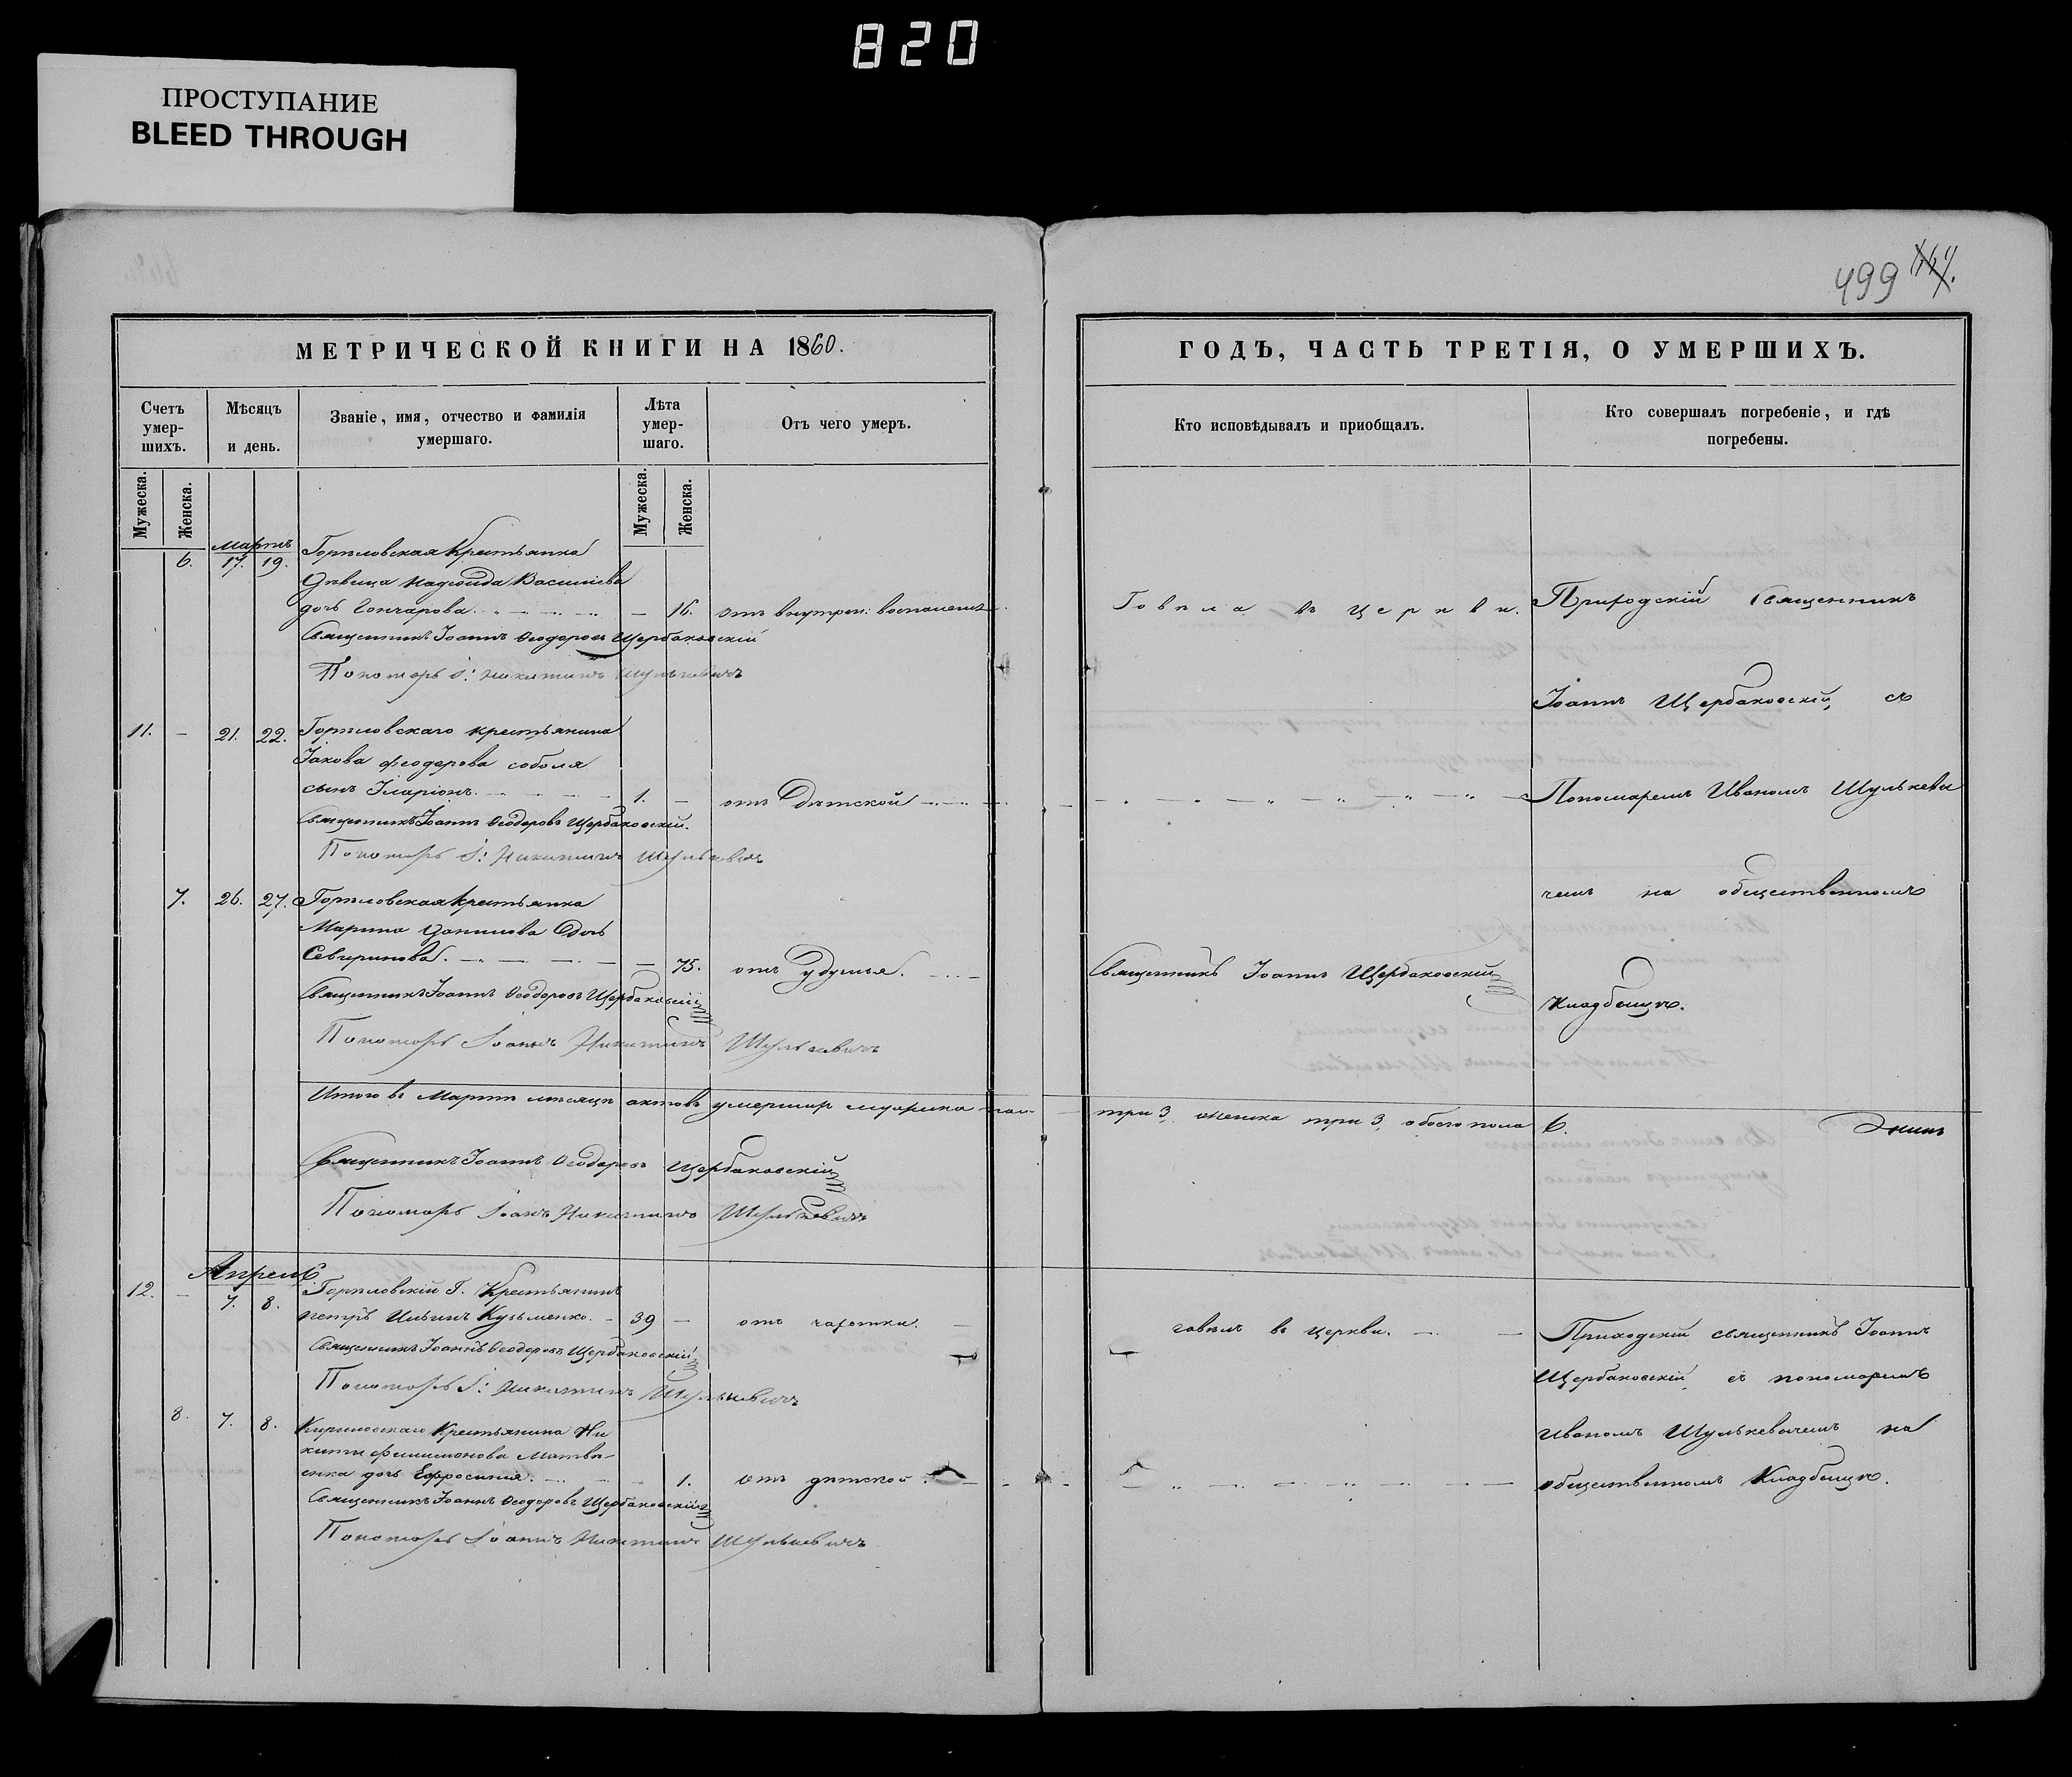 820
ПРОСТУПАНИЕ
BLEED THROUGH
499
МЕТРИЧЕСКОЙ КНИГИ НА 1860.
Счетъ умер-шихъ.
Мѣсяцъ и день.
Званіе, имя, отчество и фамилія умершаго.
Лѣта умер-шаго.
Отъ чего умеръ.
Мужеска.
Женска.
Мужеска.
Женска.
Мартъ
6. 17. 19. Горѣловская Крестьянка
Дѣвица Надежда Василіева
дочь Гончарова. — 16. отъ внутрен: воспаленія
Священникъ Іоаннъ Ѳеодоровъ Щербаковскій
Пономарь І: Никитинъ Шулькевичъ
11. — 21. 22. Горѣловскаго крестьянина
Іакова Феодорова Соболя
сынъ Іларіонъ. 1. — отъ Дѣтской
Священникъ Іоаннъ Ѳеодоровъ Щербаковскій.
Пономарь І: Никитинъ Шулькевичъ
7. 26. 27. Горѣловская крестьянка
Марина Данилова дочь
Севиринова. — 75. отъ удушья.
Священникъ Іоаннъ Ѳеодоровъ Щербаковскій
Пономарь Іоаннъ Никитинъ Шулькевичъ
Итого въ Мартѣ мѣсяцѣ актовъ умершихъ мужеска пола
Священникъ Іоаннъ Ѳеодоровъ Щербаковскій
Пономарь Іоаннъ Никитинъ Шулькевичъ
Апрель
12. — 7. 8. Горѣловскій Г. Крестьянинъ
Петръ Ильинъ Кузьменко. — 39 — отъ чахотки.
Священникъ Іоаннъ Ѳеодоровъ Щербаковскій
Пономарь І: Никитинъ Шулькевичъ
8. 7. 8. Кириловскаго Крестьянина Ни
киты Филимонова Матвѣ-
енка дочь Ефросинія. — 1. отъ дѣтской.
Священникъ Іоаннъ Ѳеодоровъ Щербаковскій
Пономарь Іоаннъ Никитинъ Шулькевичъ
ГОДЪ, ЧАСТЬ ТРЕТІЯ, О УМЕРШИХЪ.
Кто исповѣдывалъ и пріобщалъ.
Кто совершалъ погребеніе, и гдѣ
погребены.
Говѣла въ церкви. Приходскій Священникъ
Іоаннъ Щербаковскій, съ
Пономаремъ Иваномъ Шулькеви
чемъ на общественномъ
Священникъ Іоаннъ Щербаковскій
Кладбищѣ.
три 3, женска три 3, обоего пола 6.
говѣлъ въ церкви. — Приходскій священникъ Іоаннъ
Щербаковскій съ пономаремъ
Иваномъ Шулькевичемъ на
общественномъ Кладбищѣ.